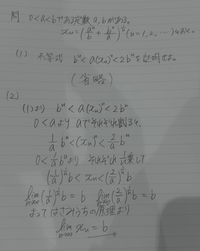 問 0<a<bである定数a,bがある。
xₙ=(aⁿ/b+bⁿ/a)^(1/n) (n=1,2,…)とおく。
(1) 不等式 bⁿ<a(xₙ)ⁿ<2bⁿを証明せよ。
(省略)
(2)
(1)より bⁿ<a(xₙ)ⁿ<2bⁿ
0<aより aでそれぞれ割ると
1/a bⁿ<(xₙ)ⁿ<2/a bⁿ
0<1/a bⁿより それぞれ 1/n乗して
(1/a)^(1/n) b<xₙ<(2/a)^(1/n) b
lim n→∞ (1/a)^(1/n) b=b lim n→∞ (2/a)^(1/n) b=b
よってはさみうちの原理より
lim n→∞ xₙ=b